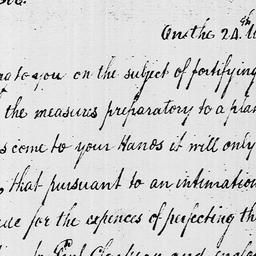 On the 24.th
you on the subject of fortifying
the measures preparatory to a plan
come to your Hands it will only
that pursuant to an intimation
for the expences of perfecting th
and